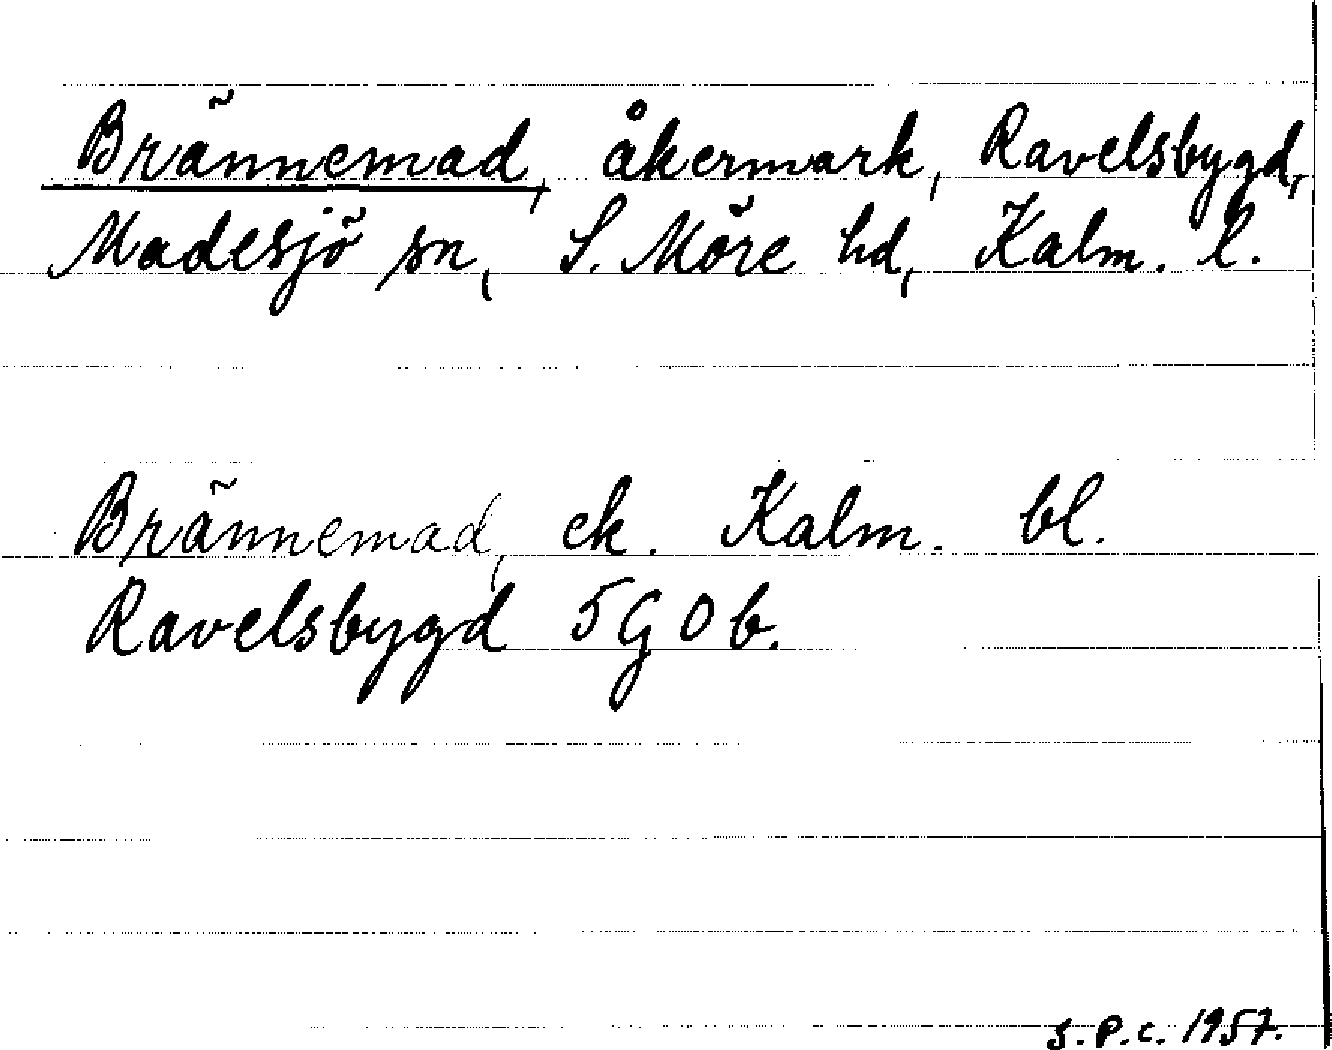 Brännemad, åkermark, Ravelsbygd,
Madesjö sn, S. Möre hd, Kalm. l.
Brännemad, ek. Kalm. bl.
Ravelsbygd 5G0b.
S.P.C. 1957.